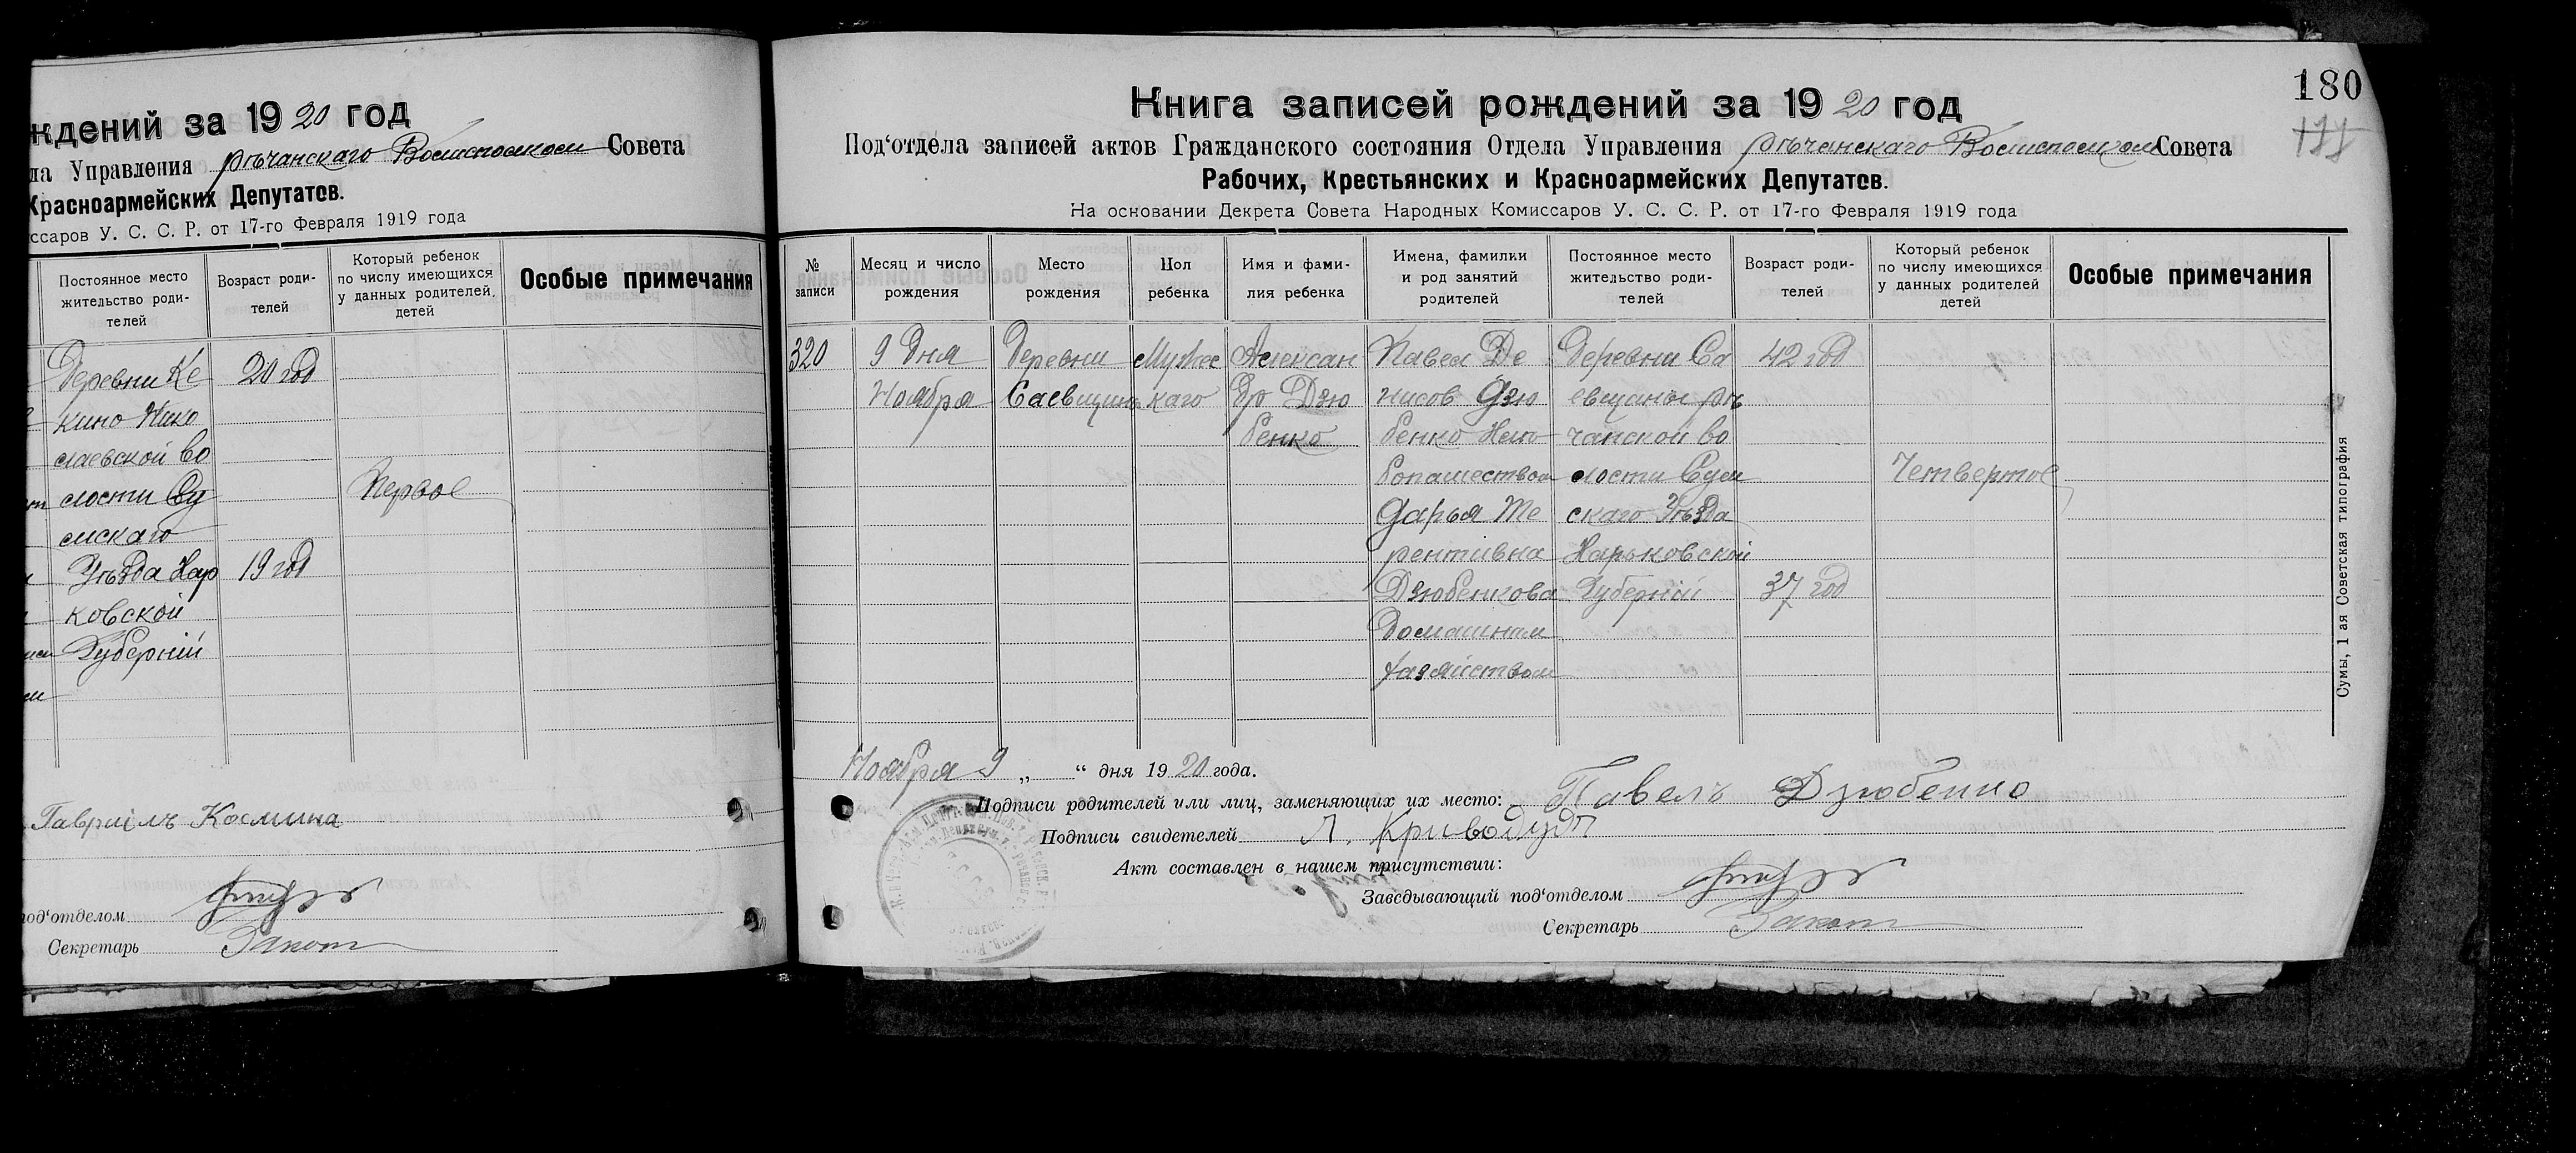 ждений за 1920 год
ла Управления рѣчанскаго Волисполком Совета
Красноармейских Депутатов.
ссаров У. С. С. Р. от 17-го Февраля 1919 года
Постоянное место жительство роди-телей
Возраст роди-телей
Который ребенок по числу имеющихся у данных родителей, детей
Особые примечания
Деревни Ке 20 год
кино Нико
лаевской во
лости Су Первое
мскаго
Уѣзда Хар 19 год
ковской
Губерніи
Гавриілъ Космина
под'отделом
Секретарь
180
Книга записей рождений за 1920 год
Под'отдела записей актов Гражданского состояния Отдела Управления рѣчанскаго Волисполком Совета
Рабочих, Крестьянских и Красноармейских Депутатов.
На основании Декрета Совета Народных Комиссаров У. С. С. Р. от 17-го Февраля 1919 года
№ записи
Месяц и число рождения
Место рождения
Пол ребенка
Имя и фами-лия ребенка
Имена, фамилии и род занятий родителей
Постоянное место жительство роди-телей
Возраст роди-телей
Который ребенок по числу имеющихся у данных родителей детей
Особые примечания
320 9 дня Деревни Мужес Алексан Павел Де Деревни Са 42 год
Ноября Саевщины каго др Дзю нисов Дзю евщины рѣ
бенко бенко Хлѣ чанской во
бопашеством лости Сум Четвертое
Дарья Те скаго Уѣзда
рентивна Харьковской
Дзюбенкова Губерніи 37 год
Домашним
хазяйством
Ноября 9 „ “ дня 1920 года.
Подписи родителей или лиц, заменяющих их место: Павелъ Дзюбенко
Подписи свидетелей Л. Криводуд
Акт составлен в нашем присутствии:
Заведывающий под'отделом
Секретарь
Сумы, 1 ая Советская типография